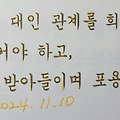 대인 관계를 회
어야 하고,
받아들이며 포용
2024. 11. 10